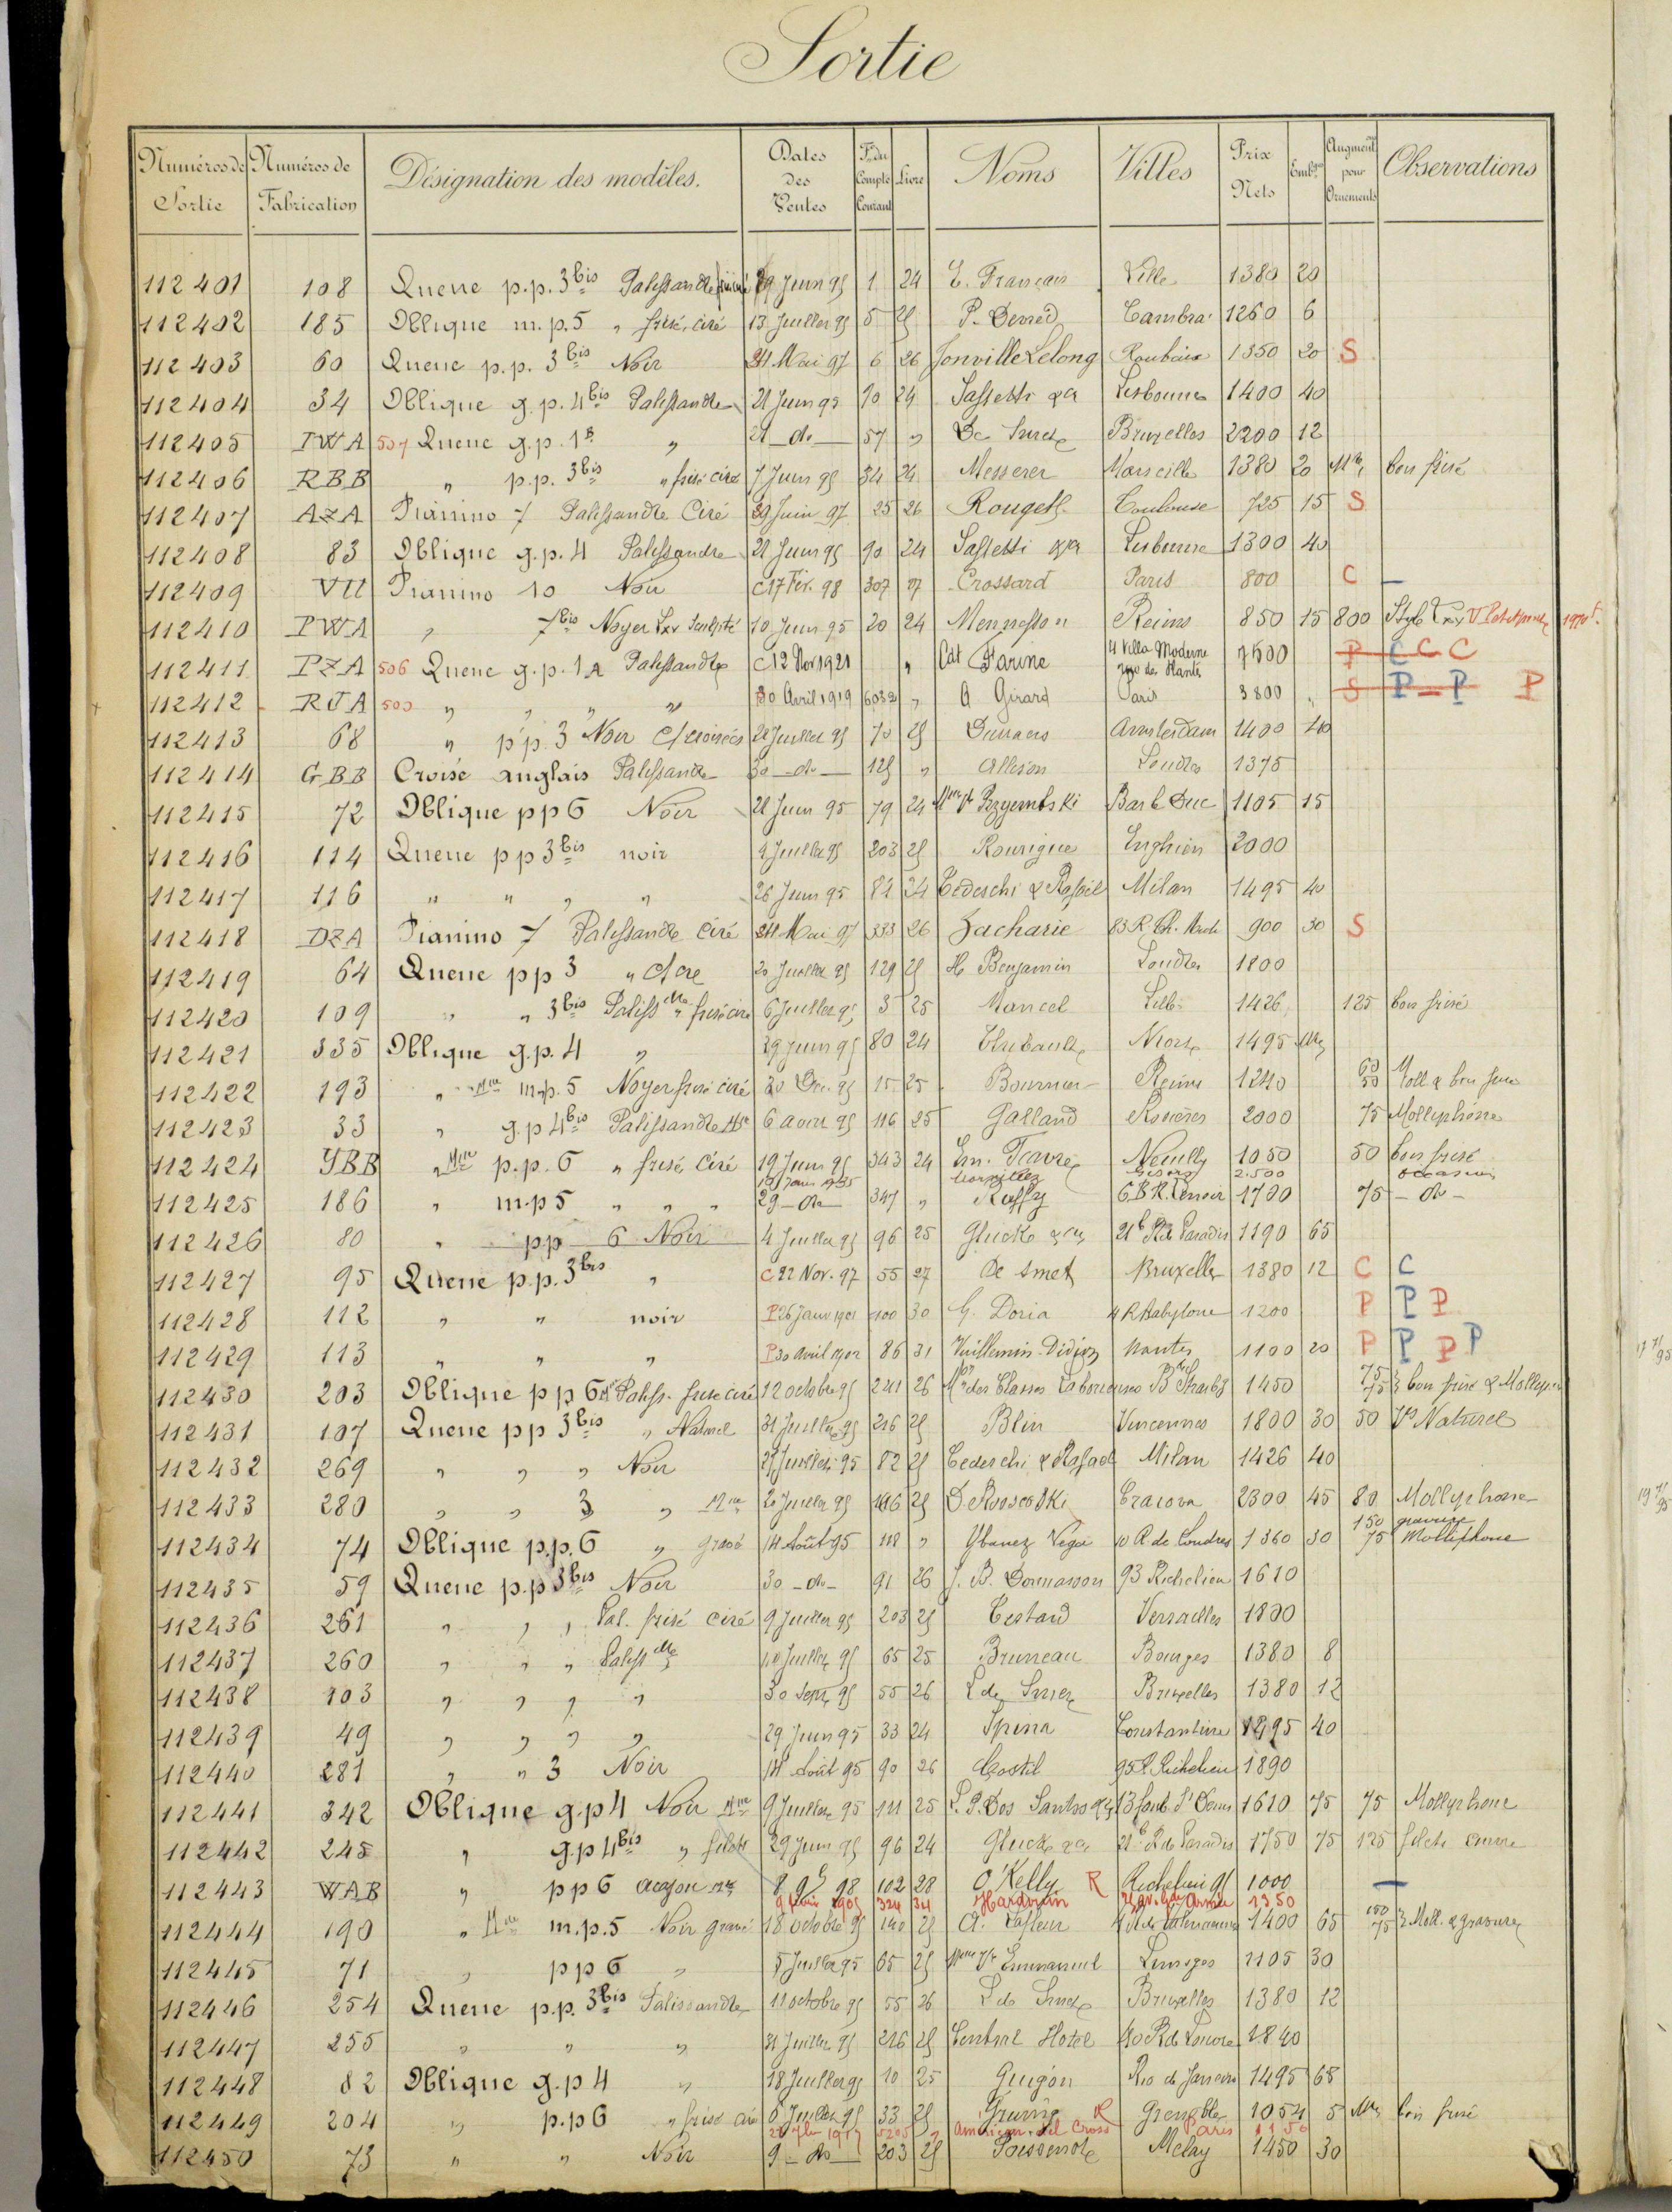 Sortie
Numéros de Sortie Numéros de Fabrication Désignation des modèles. Dates des Ventes Fo. du Compte Courant Livre Noms Villes Prix Nets Emb. Augment. pour Ornements Observations
112401 108 Queue p.p. 3 bis Palissandre 29 Juin 95 1 24 E. François Ville 1380 20
112402 185 Oblique m.p. 5 " frisé ciré 13 Juillet 95 5 25 P. Cambrai 1260 6
112403 60 Queue p.p. 3 bis Noir 24 Mai 97 6 26 Jonville Lelong Roubaix 1350 20 S
112404 34 Oblique g.p. 4 bis Palissandre 21 Juin 95 90 24 Sassetti & Cie Lisbonne 1400 40
112405 IWA 507 Queue g.p. 1 " 21 do 57 " De Smet Bruxelles 2200 12
112406 RBB " p.p. 3 bis " frisé ciré 7 Juin 95 34 24 Messerer Marseille 1380 20 bon frisé
112407 AZA Pianino 7 Palissandre Ciré 29 Juin 97 25 26 Rouget Toulouse 725 15 S
112408 83 Oblique g.p. 4 Palissandre 21 Juin 95 90 24 Sassetti & Cie Lisbonne 1300 40
112409 VU Pianino 10 Noir C 17 Fév. 98 307 27 Crossard Paris 800 C
112410 PWA " 7 bis Noyer Lxv Sculpté 10 Juin 95 20 24 Mennesson Reims 850 15 800 Style Lxv
112411 PZA 506 Queue g.p. 1 A Palissandre C 12 Nov 1921 " Cdt Farine 4 Villa Moderne rue des Plantes 7500 P C C C
112412 RJA 500 " " " " 30 Avril 1919 6032 " A Girard Paris 3800 " S P P P
112413 68 " p.p. 3 Noir C/ croisées 22 Juillet 95 70 25 Amsterdam 1400 40
112414 GBB Croisé anglais Palissandre 30 do 125 " Allison Londres 1375
112415 72 Oblique pp 6 Noir 21 Juin 95 79 24 Mme Ve Przyembski Bar le Duc 1105 15
112416 114 Queue pp 3 bis noir 4 Juillet 95 203 25 Rourigue Enghien 2000
112417 116 " " " " 26 Juin 95 82 24 Tedeschi & Rafaël Milan 1495 40
112418 DZA Pianino 7 Palissandre Ciré 24 Mai 97 333 26 Zacharie 83 R. 900 30 S
112419 64 Queue pp 3 " 20 Juillet 95 129 25 H. Benjamin Londres 1800
112420 109 " " 3 bis Paliss dre frisé ciré 6 Juillet 95 3 25 Mancel Lille 1426 125 bon frisé
112421 335 Oblique g.p. 4 " 29 Juin 95 80 24 Thibault Niort 1495
112422 193 " Mne m.p. 5 Noyer frisé ciré 30 Déc. 95 15 25 Bournier Reims 1240 60 50 Moll & bon frisé
112423 33 " g.p 4 bis Palissandre Mne 6 Aout 95 116 25 Galland Rosières 2000 75 Mollyphone
112424 YBB " Mne p.p. 6 " frisé Ciré 19 Juin 95 343 24 Em. Favre Neuilly 1050 50 bon frisé
Gisors 2.500 occasion
112425 186 " m.p 5 " " " 29 do 347 " Ruffy 6 B R. Lenoir 1700 75 - do -
112426 80 " pp 6 Noir 4 Juillet 95 96 25 Gluck & Cie 21 b R de Paradis 1190 65
112427 95 Queue p.p. 3 bis " C 22 Nov. 97 55 27 De Smet Bruxelles 1380 12 C C
112428 112 " " noir P 26 Janv 1901 100 30 G. Doria 4 R Babylone 1200 P P P
112429 113 " " " P 30 Avril 1902 86 31 Vuillemin-Didion Nantes 1100 20 P P P P
112430 203 Oblique pp 6 Paliss. frisé ciré 12 octobre 95 241 26 Mon des Classes Laborieuses Bd Strasbg 1450 75 75 bon frisé & Mollyphone
112431 107 Queue pp 3 bis " Naturel 31 Juillet 95 216 25 Blin Vincennes 1800 30 50 Vis Naturel
112432 269 " " " Noir 27 Juillet 95 82 25 Tedeschi & Rafael Milan 1426 40
112433 280 " " 3 " Mne 20 Juillet 95 25 Cracova 2300 45 80 Mollyphone
112434 74 Oblique p.p. 6 " gravé 14 Août 95 118 " Ybanez Vega 10 R de Londres 1360 30 150 75 gravure Mollyphone
112435 59 Queue p.p 3 bis Noir 30 - do - 91 26 J. B. 93 Richelieu 1610
112436 261 " " " Pal. frisé ciré 9 Juillet 95 203 25 Testard Versailles 1800
112437 260 " " " Paliss dre 10 Juillet 95 65 25 Bruneau Bourges 1380 8
112438 103 " " " " 30 Sept 95 55 26 L de Smet Bruxelles 1380 12
112439 49 " " " " 29 Juin 95 33 24 Spina Constantine 1495 40
112440 281 " " 3 Noir 14 Août 95 90 26 Costil 95 R. Richelieu 1890
112441 342 Oblique g.p 4 Noir Mne 9 Juillet 95 121 25 L. P. Dos Santos & Cie 13 faub St Denis 1610 75 75 Mollyphone
112442 245 " g.p 4 bis " filets 29 Juin 95 96 24 Gluck & Cie 21 b R de Paradis 1750 75 125 filets cuivre
112443 WAB " pp 6 acajou Mne 8 9b 98 102 28 O'Kelly R Richelieu 95 1000
9 1905 324 34 Hardouin gde Armée 1350
112444 190 " Mne m.p. 5 Noir gravé 18 octobre 95 140 25 A. Lafleur 1400 65 150 75 Moll. & gravure
112445 71 " pp 6 " 5 Juillet 95 65 25 Mme Ve Emmanuel Limoges 1105 30
112446 254 Queue p.p. 3 bis Palissandre 11 octobre 95 55 26 L de Smet Bruxelles 1380 12
112447 255 " " " 31 Juillet 95 216 25 Central Hotel 40 R du Louvre 1840
112448 82 Oblique g.p 4 " 18 Juillet 95 10 25 Guigon Rio de Janeiro 1495 65
112449 204 " p.p 6 " frisé ciré 6 Juillet 95 33 25 R Grenoble 1054 5 bon frisé
1917 5205 " American Red Cross Paris 1150
112450 73 " " Noir 9 - do 203 25 Poissenot Melay 1450 30